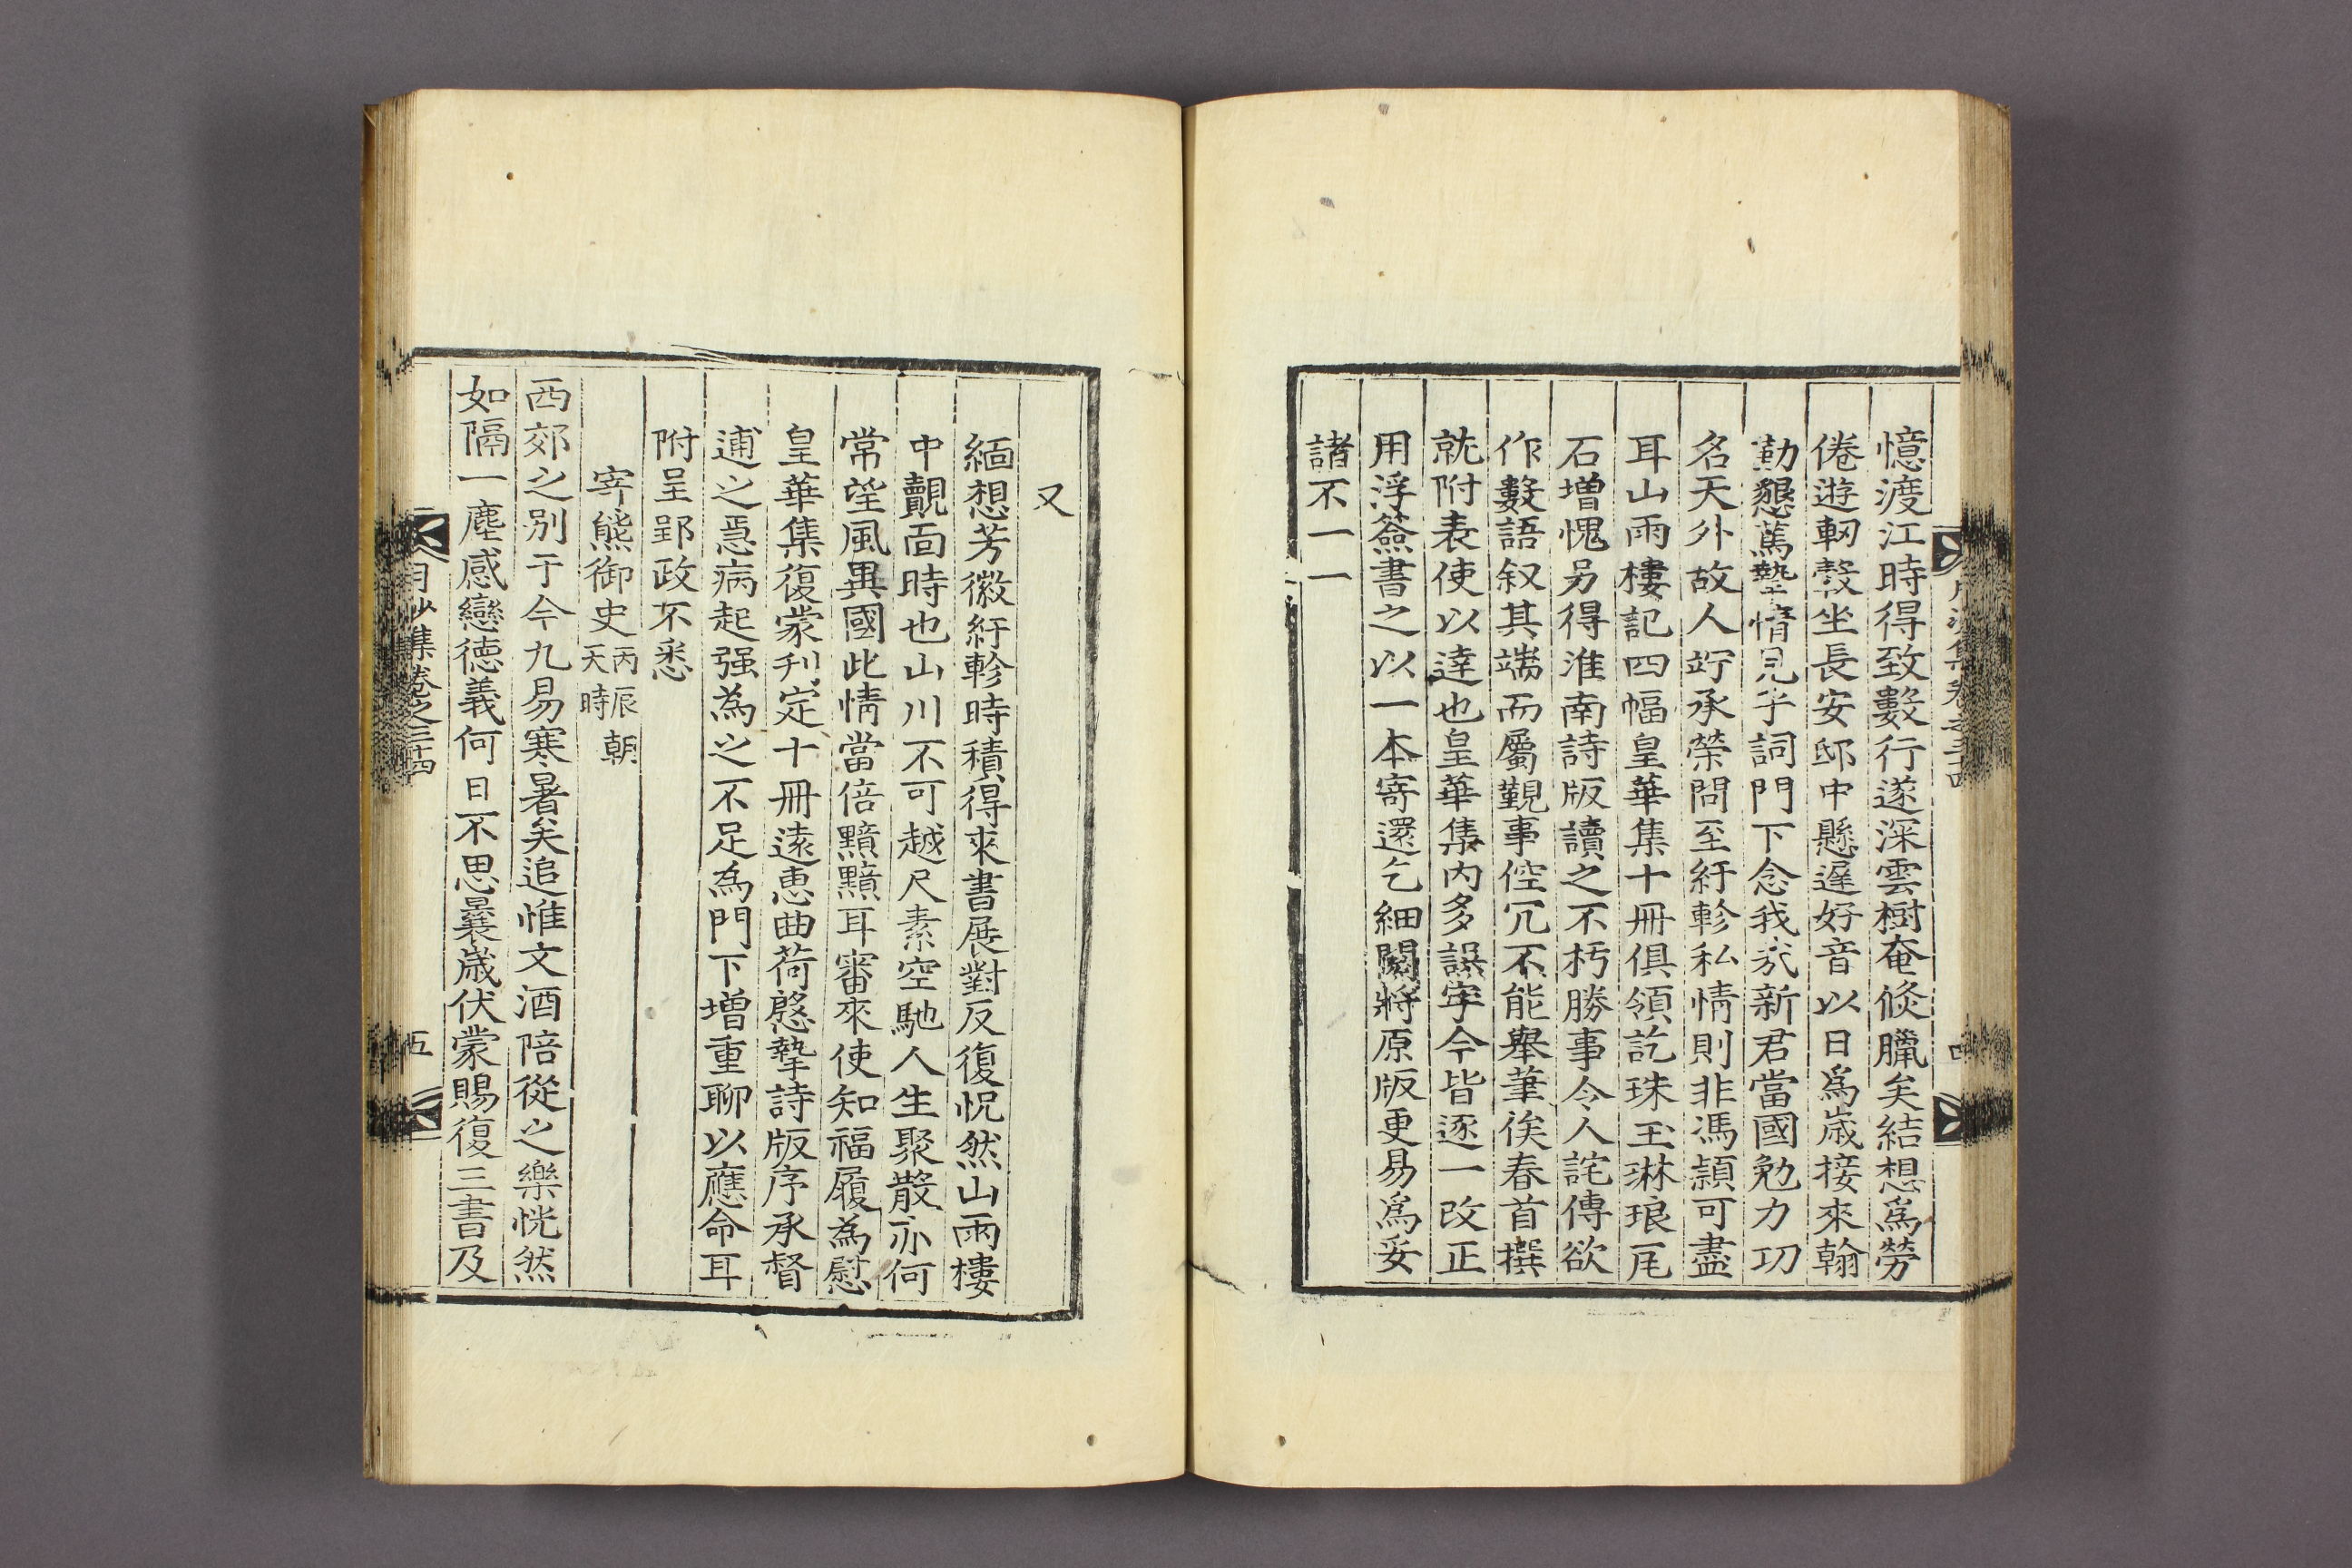 憶渡江時得致數行遂深雲樹奄倐臘矣結想爲勞
倦遊軔轂坐長安邸中懸遲好音以日爲歲接來翰
勤懇篤摯情見乎詞門下念我哉新君當國勉力功
名天外故人竚承榮問至紆軫私情則非馮穎可盡
耳山雨樓記四幅皇華集十冊俱領訖珠玉琳琅瓦
石增愧另得淮南詩版讀之不朽勝事令人詫傳欲
作數語叙其端而屬覲事倥冗不能舉筆俟春首撰
就附表使以達也皇華集內多誤字今皆逐一改正
用浮簽書之以一本寄還乞細閱將原版更易爲妥
諸不一一
又
緬想芳徽紆軫時積得來書展對反復怳然山雨樓
中覿面時也山川不可越尺素空馳人生聚散亦何
常望風異國此情當倍黯黯耳審來使知福履為慰
皇華集復蒙刋定十冊遠惠曲荷慇摯詩版序承督
逋之急病起强為之不足爲門下增重聊以應命耳
附呈郢政不悉
寄熊御史 丙辰朝天時
西郊之別于今九易寒暑矣追惟文酒陪從之樂恍然
如隔一塵感戀德義何日不思曩歲伏蒙賜復三書及
月沙集卷之三十四
五